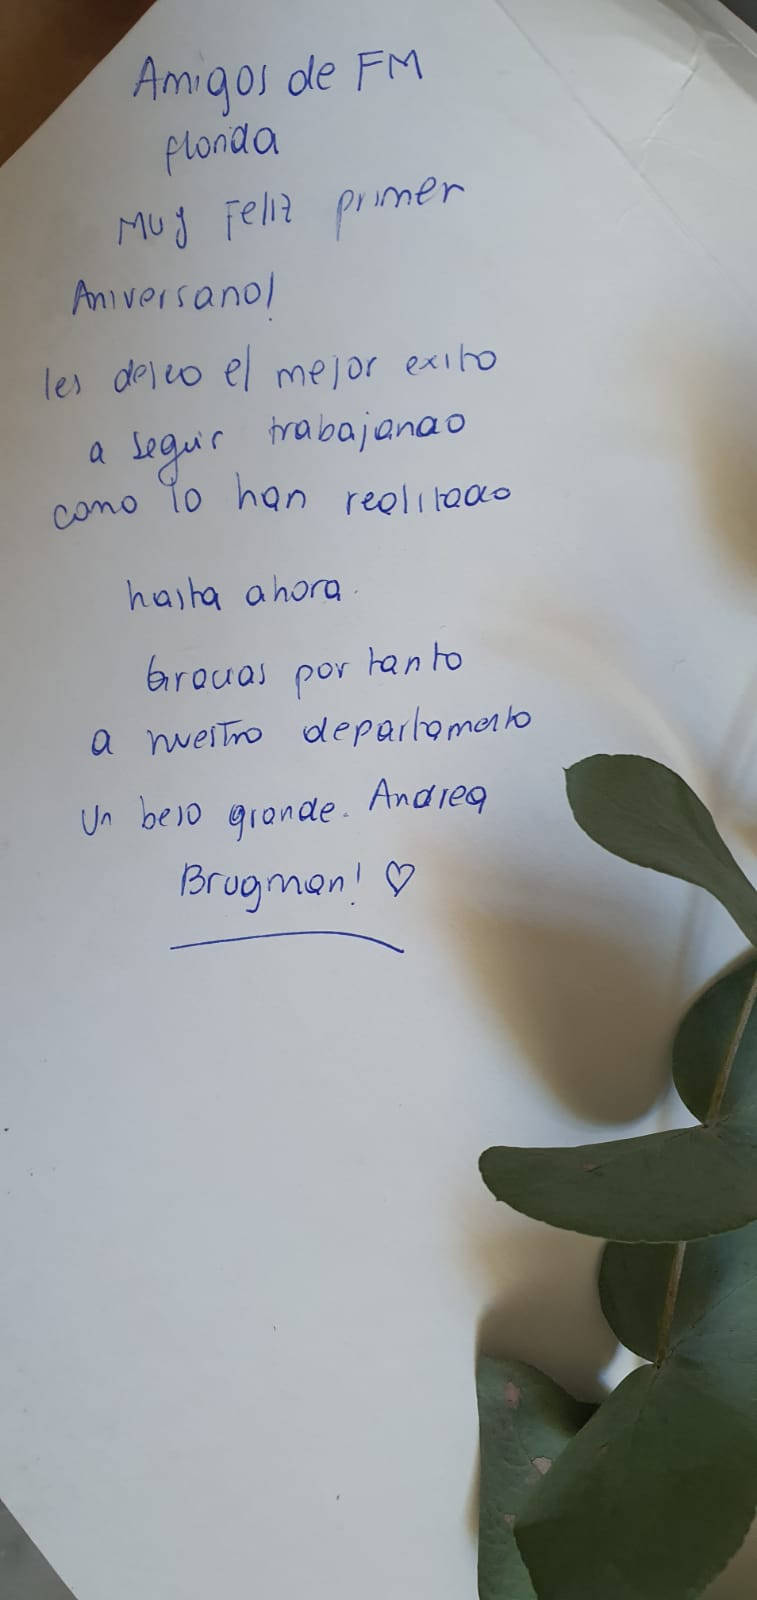 Amigos de FM
florida
Muy Feliz primer
Aniversario!
les deseo el mejor exito
a seguir trabajando
como lo han realizado
hasta ahora.
Gracias por tanto
a nuestro departamento
Un beso grande. Andrea
Brugman! ♡